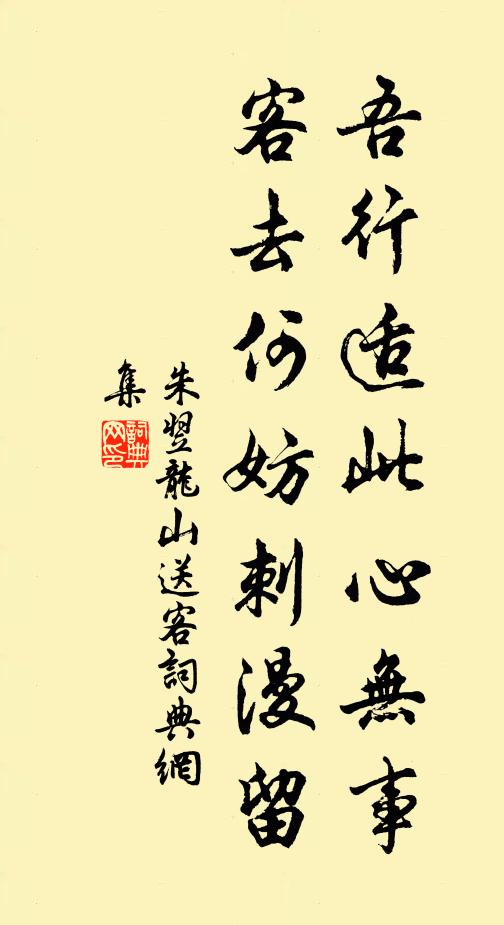 吾行适此心無事
客去何妨刺漫留
朱翌龍山送客詞典網
集
詞典网印